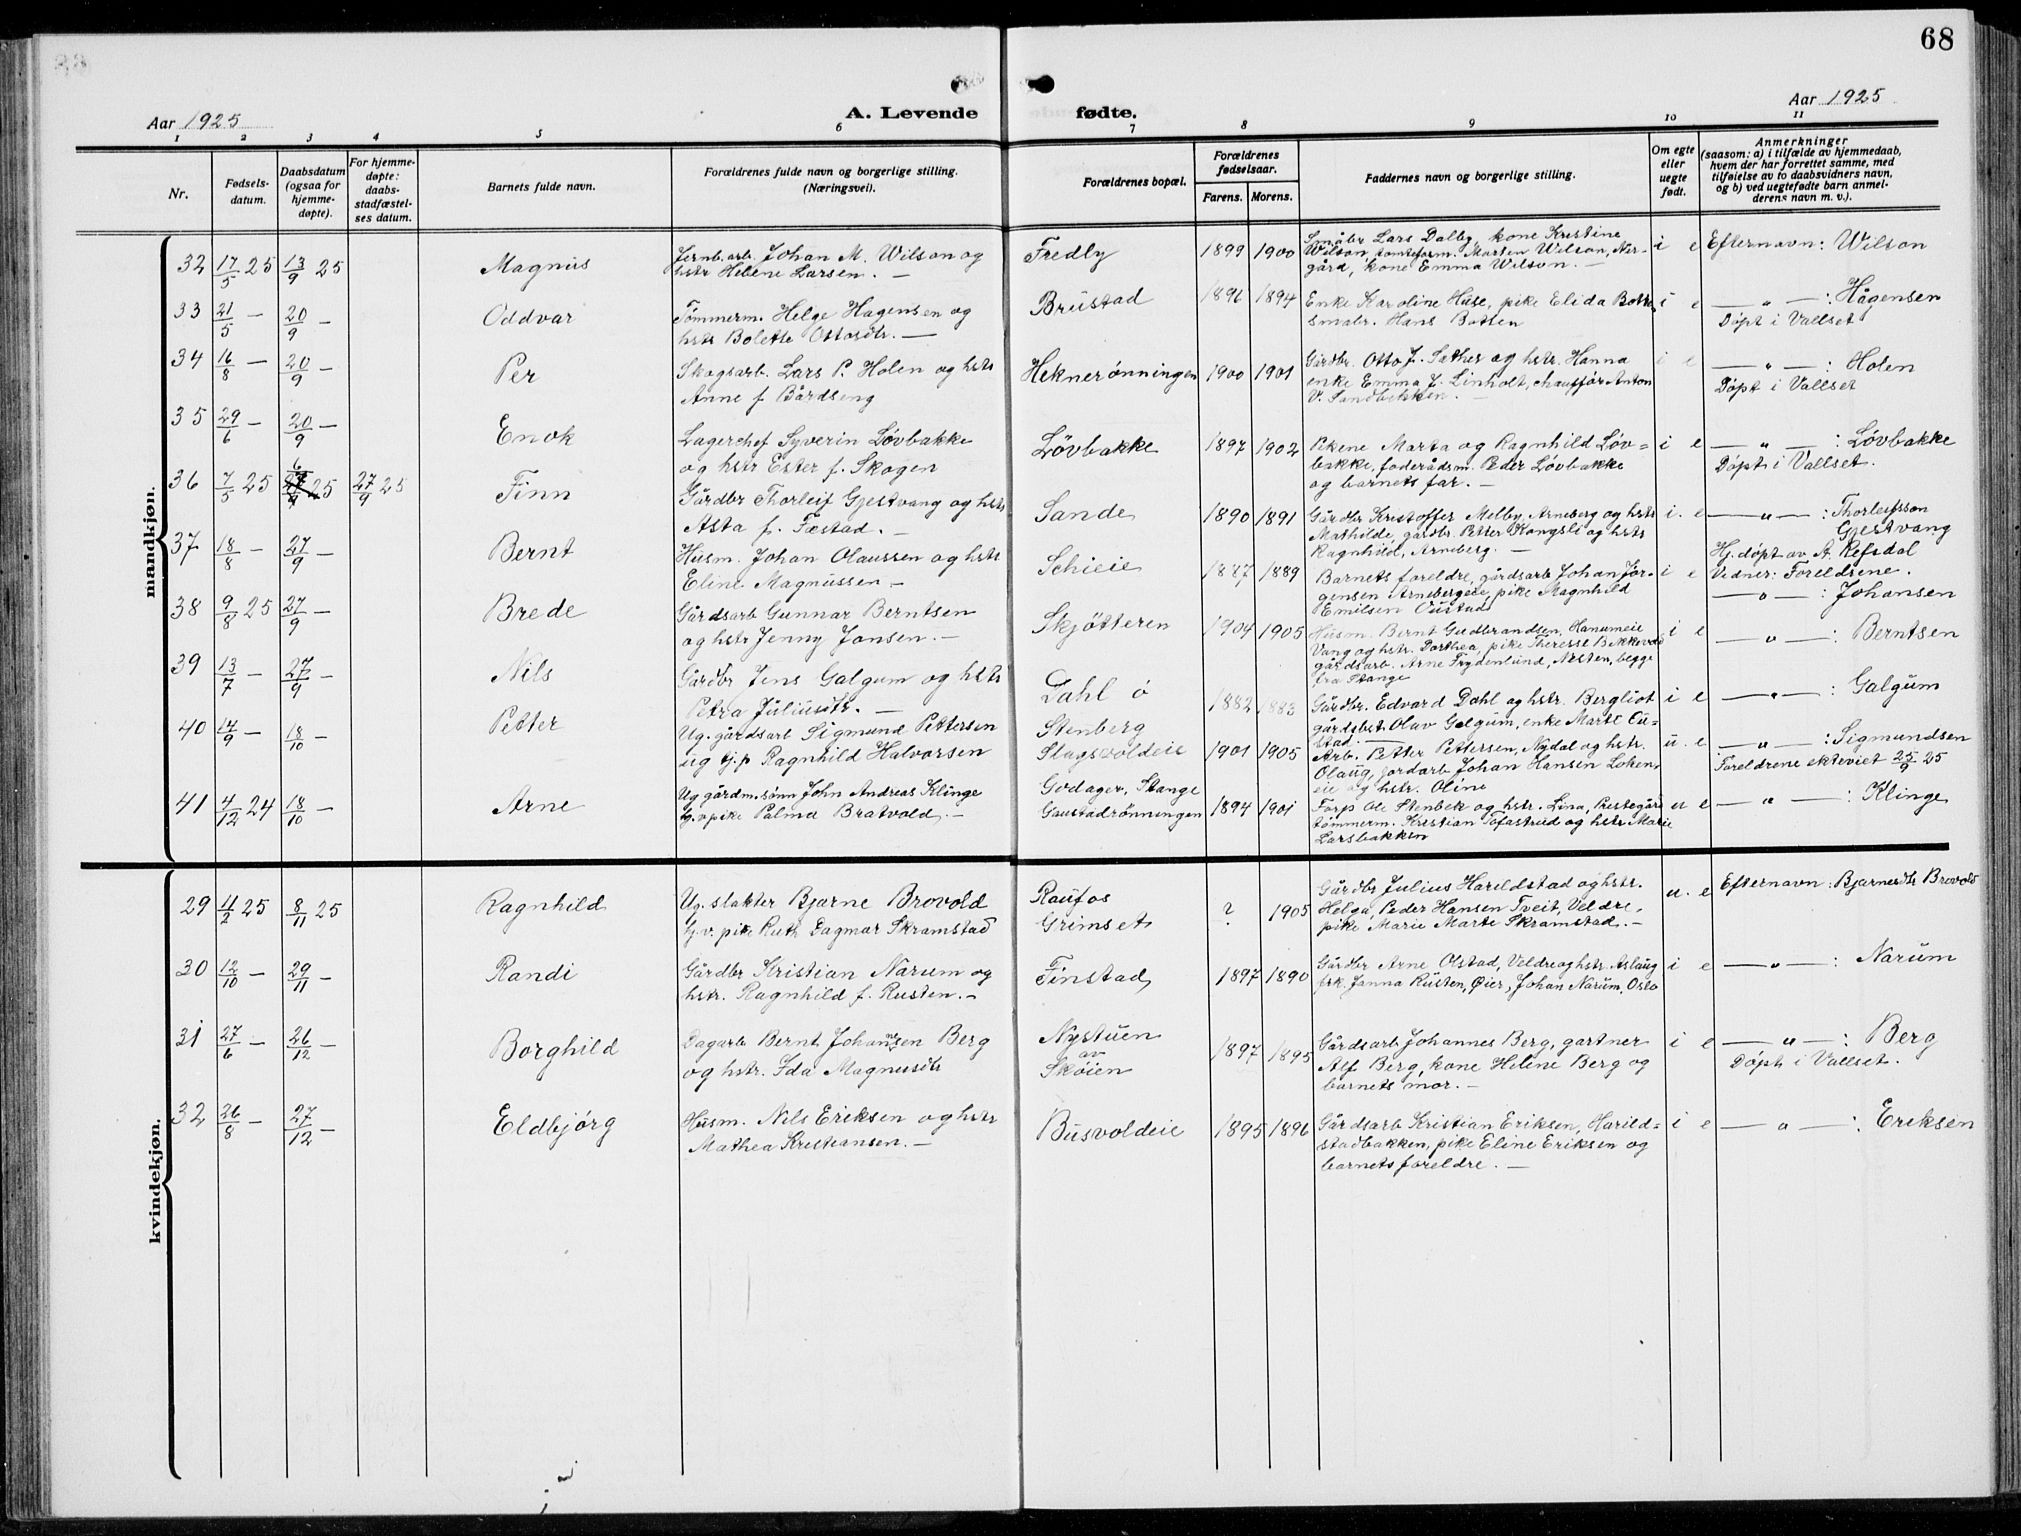 68
Aar 1925
A. Levende fødte.
Aar 1925
1 2 3 4 5 6 7 8 9 10 11
Nr.
Fødsels-
datum.
Daabsdatum
(ogsaa for
hjemme-
døpte).
For hjemme-
døpte:
daabs-
stadfæstel-
ses datum.
Barnets fulde navn.
Forældrenes fulde navn og borgerlige stilling.
(Næringsvei).
Forældrenes bopæl.
Forældrenes
fødselsaar.
Farens. Morens.
Faddernes navn og borgerlige stilling.
Om egte
eller
uegte
født.
Anmerkninger
(saasom: a) i tilfælde av hjemmedaab,
hvem der har forrettet samme, med
tilføielse av to daabsvidners navn,
og b) ved uegtefødte barn anmel-
derens navn m. v.).
mandkjøn.
32 17/5 25 13/9 25 Magnus
Jernb.arb. Johan M. Wilson og
hstr Helene Larsen. —
Fredly 1899 1900
Småbr Lars Dalby, kone Kristine
Wilson, tomteform. Morten Wilson, Nor-
gård, kone Emma Wilson. —
i e Efternavn: Wilson
33 21/5 — 20/9 — Oddvar
Tømmerm. Helge Hagensen og
hstr Bolette Ottosdtr. —
Brustad 1896 1894
Enke Karoline Huse, pike Elida Botten
småbr. Hans Botten
i e — " — : Hågensen
Døpt i Vallset
34 16/8 — 20/9 — Per
Skogsarb. Lars P. Holen og hstr
Anne f. Bårdseng
Heknerønningen 1900 1901
Gårdbr. Otto J. Sæther og hstr. Hanna
enke Emma J. Linholt, chauffør Anton
V. Sandbekken. —
i e — " — : Holen
Døpt i Vallset
35 29/6 — 20/9 — Enok
Lagerchef Syverin Løvbakke
og hstr Ester f. Skogen
Løvbakke 1897 1902
Pikene Marta og Ragnhild Løv-
bakke, foderådsm. Peder Løvbakke
og barnets far. —
i e — " — : Løvbakke
Døpt i Vallset.
36 7/5 25 6/7 25 27/9 25 Finn
Gårdbr Thorleif Gjestvang og hstr
Asta f. Fæstad. —
Sande 1890 1891
Gårdbr Kristoffer Melby, Arneberg og hstr
Mathilde, gårdbr. Petter Kongsli og hstr
Ragnhild, Arneberg. —
i. e — " — : Thorleifsson
Gjestvang
Hj. døpt av A. Refsdal
Vidner: Foreldrene.
37 18/8 — 27/9 — Bernt
Husm. Johan Olaussen og hstr
Eline Magnussen —
Schieie 1887 1889
Barnets foreldre, gårdsarb Johan Jør-
gensen Arnebergeie, pike Magnhild
Emilsen Oustad
i e — " — : Johansen
38 9/8 25 27/9 — Brede
Gårdsarb Gunnar Berntsen
og hstr Jenny Jonsen. —
Skjøtteren 1904 1905
Husm. Bernt Gudbrandsen, Hanumeie
Vang og hstr. Dorthea, pike Therese Bekkevold
gårdsarb. Arne Frydenlund, Nesten, begge
fra Stange
i e — " — : Berntsen
39 13/7 — 27/9 — Nils
Gårdbr Jens Galgum og hstr
Petra Juliusdtr. —
Dahl ø 1882 1883
Gårdbr. Edvard Dahl og hstr. Bergliot
gårdsbest. Olav Galgum, enke Marte Ou-
stad. —
i e — " — : Galgum
40 14/9 — 18/10 — Petter
Ug. gårdsarb Sigmund Pettersen
ug tj.p Ragnhild Halvorsen
Stenberg
Slagsvoldeie 1901 1905
Arb. Petter Pettersen, Nydal og hstr.
Olaug, jordarb Johan Hansen Loken-
eie og hstr. Oline
u. e — " — : Sigmundsen
Foreldrene ekteviet 25/9 25
41 4/12 24 18/10 — Arne
Ug gårdm.sønn John Andreas Klinge
tj.v pike Palma Bratvold. —
Godager, Stange
Gaustadrønningen 1894 1901
Forp Ole Stenbek og hstr. Lina, Prestegård
tømmerm. Kristian Tofastrud og hstr Marie
Larsbakken
u e — " — : Klinge
kvindekjøn.
29 11/2 25 8/11 25 Ragnhild
Ug. slakter Bjarne Brovold
tj.v. pike Ruth Dagmar Skramstad
Raufos
Grimset ? 1905
Gårdbr Julius Harildstad og hstr.
Helga, Peder Hansen Tveit, Veldre,
pike Marie Marte Skramstad. —
u. e Efternavn: Bjarnesdtr Brovold
30 12/10 — 29/11 — Randi
Gårdbr Kristian Narum og
hstr. Ragnhild f. Rusten. —
Finstad 1897 1890
Gårdbr Arne Olstad, Veldre og hstr. Aslaug
frk. Janna Rusten, Øier, Johan Narum, Oslo
i e — " — : Narum
31 27/6 — 26/12 — Borghild
Dagarb Bernt Johannsen Berg
og hstr. Ida Magnusdtr
Nystuen
av
Skøien 1897 1895
Gårdsarb Johannes Berg, gartner
Alf Berg, kone Helene Berg og
barnets mor. —
i e — " — : Berg
Døpt i Vallset.
32 26/8 — 27/12 — Eldbjørg
Husm. Nils Eriksen og hstr
Mathea Kristiansen. —
Busvoldeie 1895 1896
Gårdsarb Kristian Eriksen, Harild-
stadbakken, pike Eline Eriksen og
barnets foreldre. —
i e — " — : Eriksen